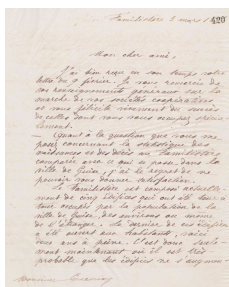 Familistère 8 mars 1
420
Mon cher ami,
J'ai bien reçu en son temps votre
lettre du 9 février. Je vous remercie de
vos renseignements généraux sur la
marche de vos sociétés coopératives
et vous félicite vivement du succès
de celles dont vous vous occupez spécia-
lement.
Quant à la question que vous me
posez concernant la statistique des
naissances et des décès au Familistère
comparée avec ce qui se passe dans la
ville de Guise, j'ai le regret de ne
pouvoir vous donner satisfaction.
Le Familistère est composé actuelle-
ment de cinq édifices qui ont été tour à
tour occupés par la population de la
ville de Guise, des environs ou même
de l'étranger. Le dernier de ces édifices
a été ouvert aux habitants, voici
deux ans à peine. C'est donc seule-
ment maintenant où il est très
probable que les édifices ne s'augmen
Monsieur